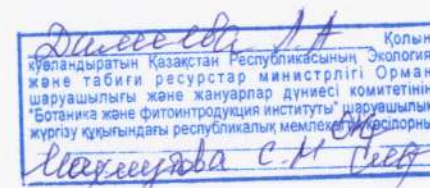 Димеева Л.А Қолын
куәландыратын Қазақстан Республикасының Экология
және табиғи ресурстар министрлігі Орман
шаруашылығы және жануарлар дүниесі комитетінің
"Ботаника және фитоинтродукция институты" шаруашылық
жүргізу құқығындағы республикалық
Махмутова С.М